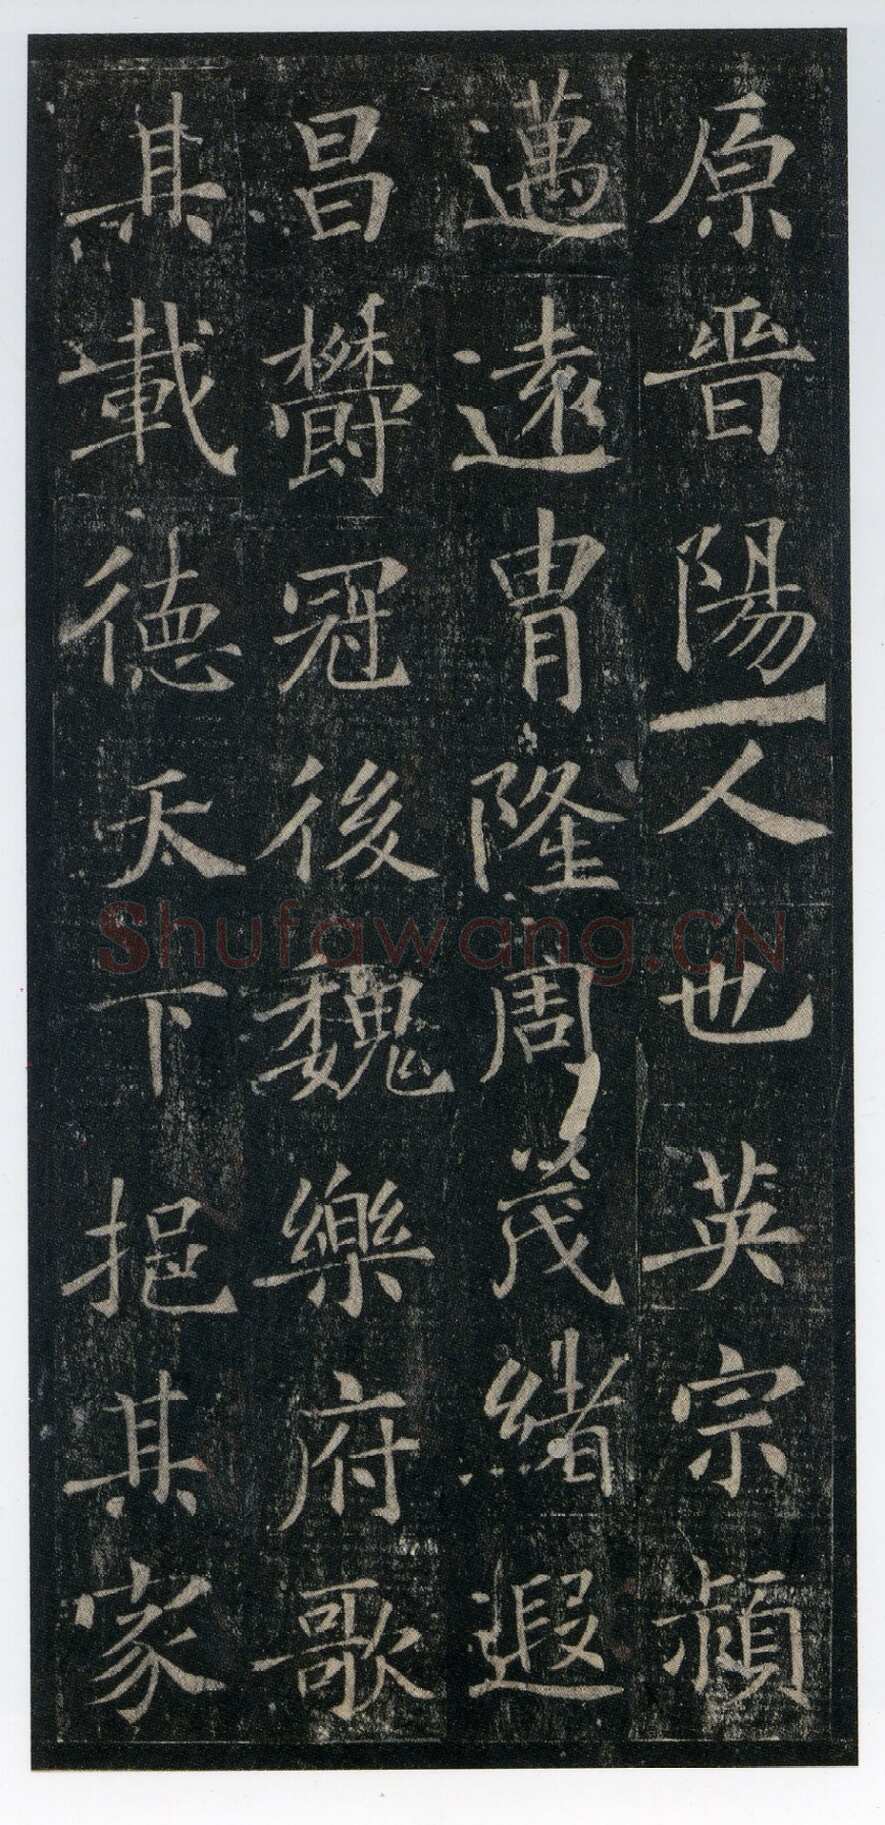 原晉陽人也英宗穎
邁遠冑隆周茂緒遐
昌鬱冠後魏樂府歌
其載德天下挹其家
Shufawang.CN